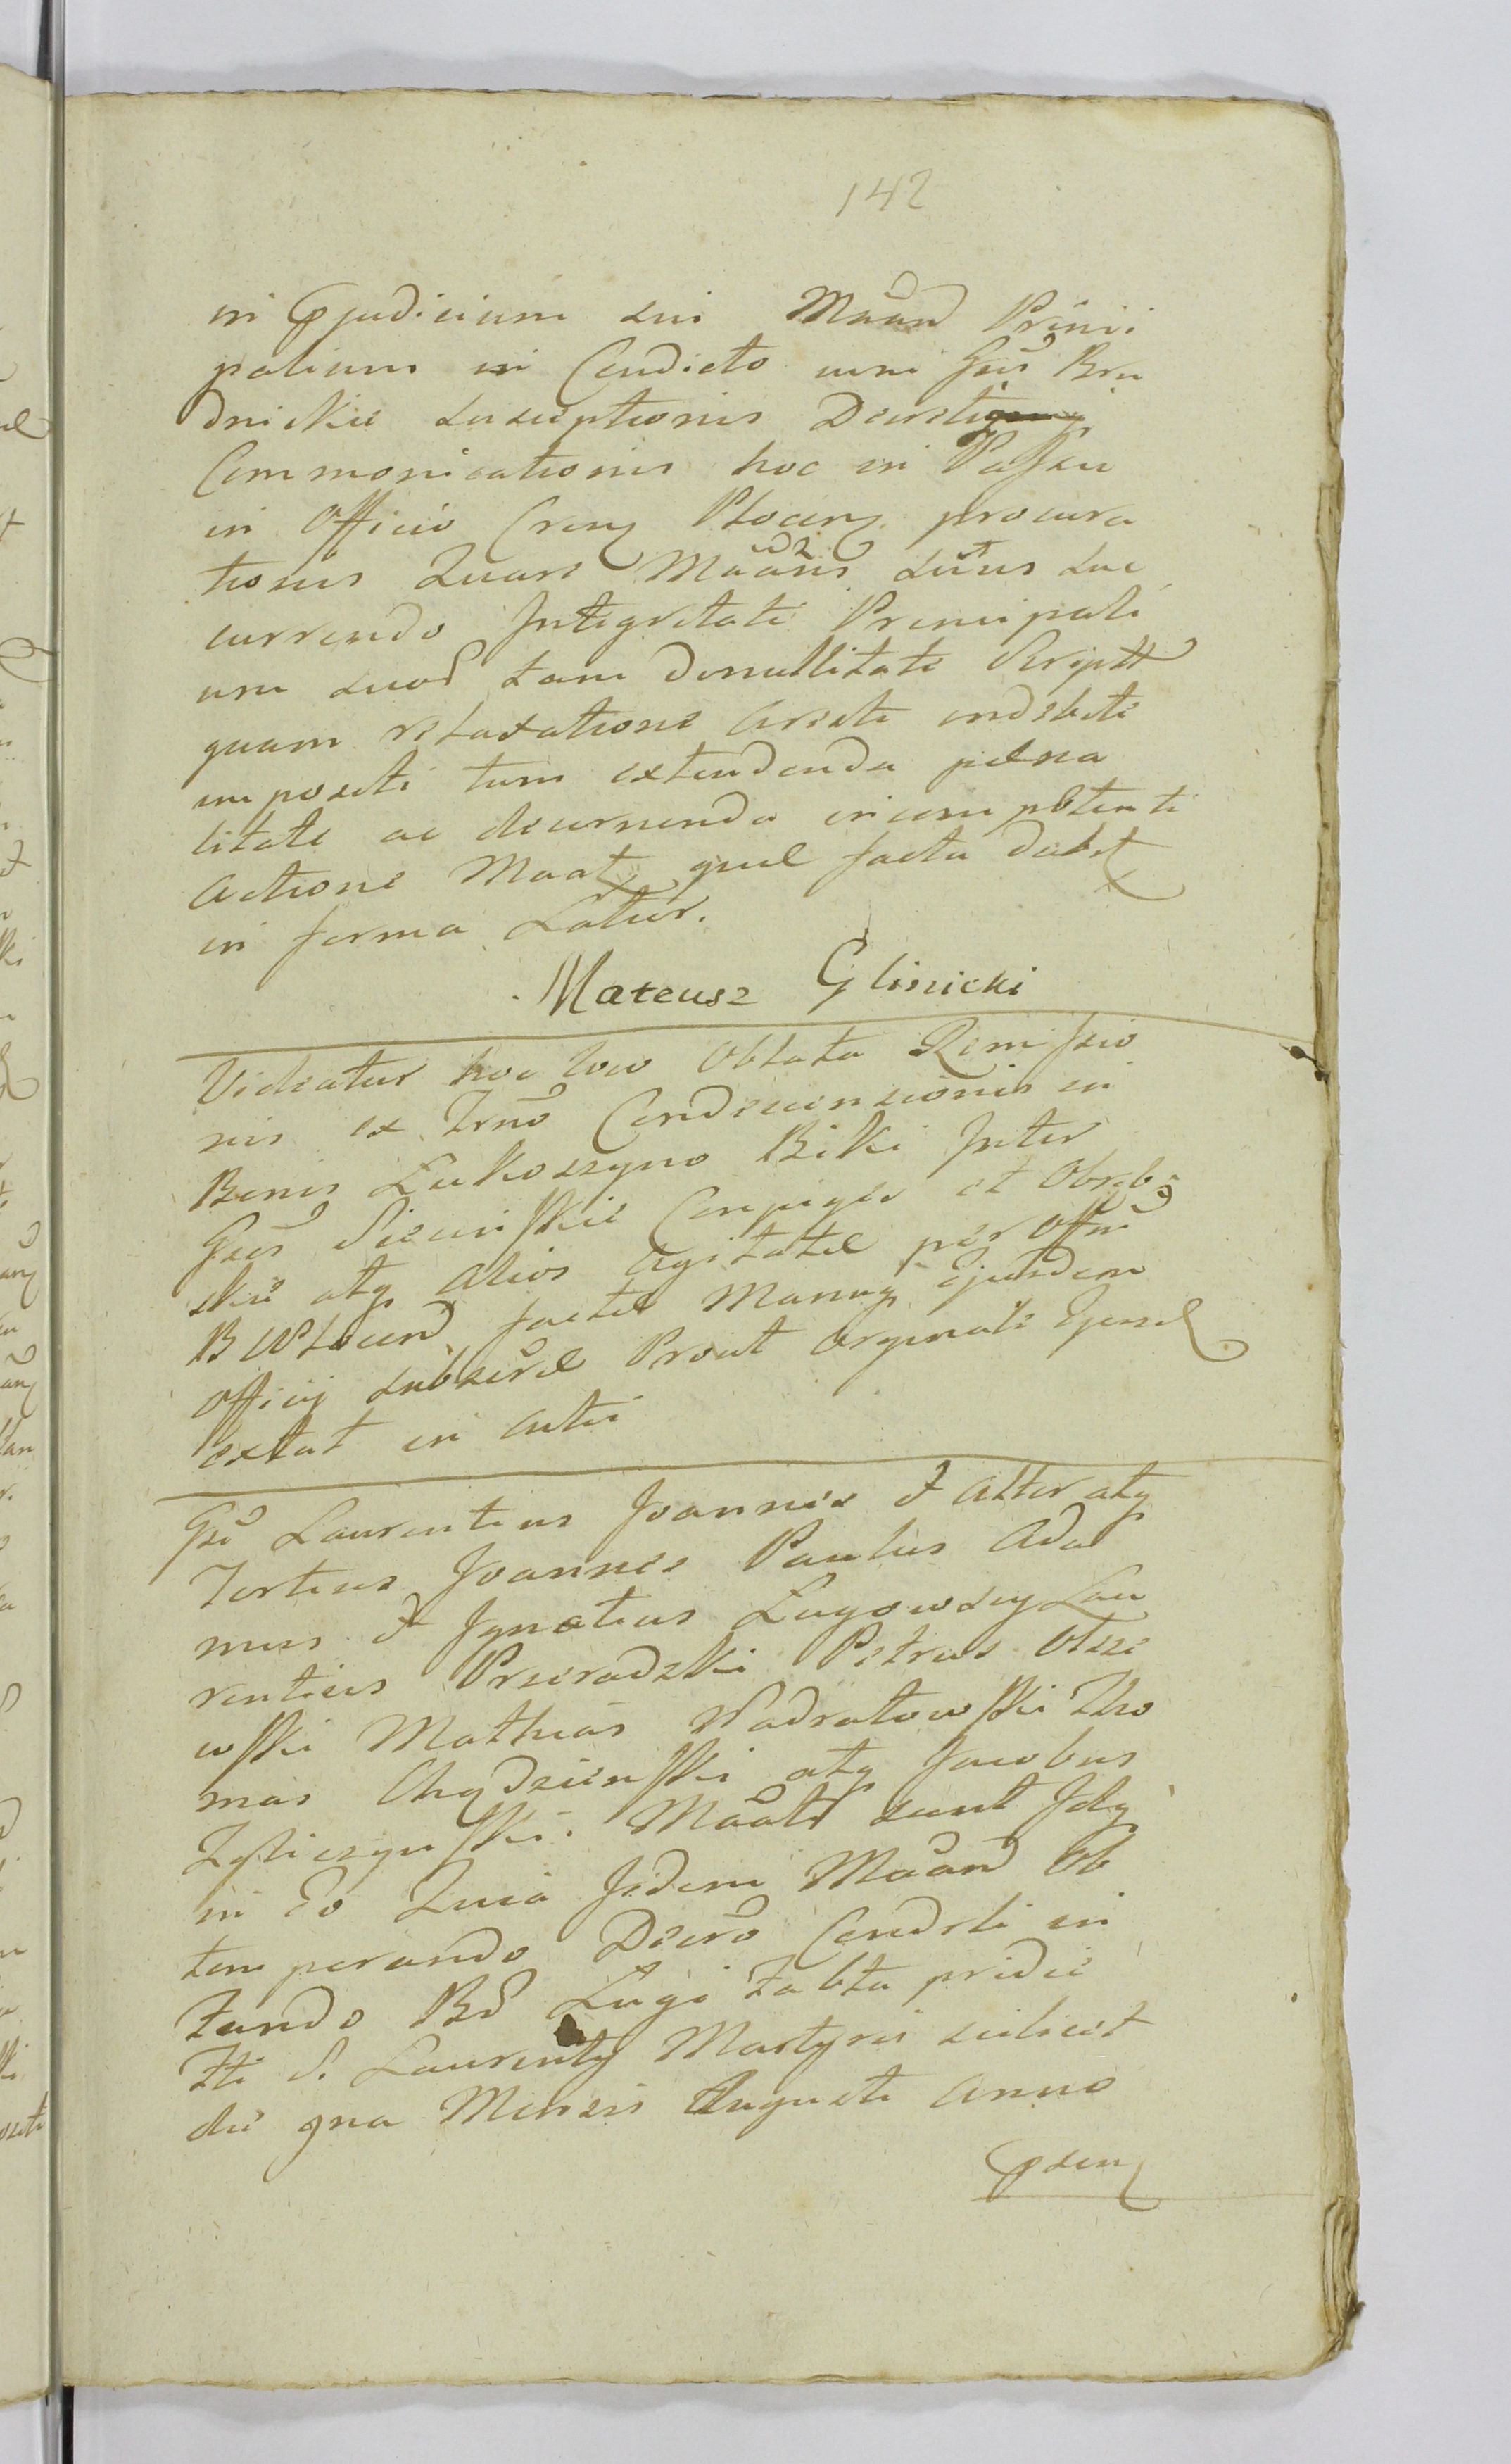 142
in Pjudicium sui Maand Princi
palium in Condicto cum Gsis Bru
dnickie susceptionis Decreti
Commonicationis hoc in Passu
in Officio Cren Plocen procura
tionis Quare Maans suus suc
currendo Integritati Principali
um suor tam de nullitate Script
quam relaxatione Aresti indebite
impositi tum extendenda poena
litate ac decernenda incompetenti
Actione Maat gnel facta debet
in forma Latur.
Mateusz Glinicki
Videatur hoc loco Oblata Remissio
nis ex Trno Condescensionis in
Bonis Lukoszyno Biki Inter
Gsos Siecinskie Conjuges et Obreb
skie atq Alios agitatae per Offm
B Plocen factae Manuq Ejusdem
Officij subscrae Prout Originale Ejusd
extat in Actis
Gsi Laurentius Joannes & Alter atq
Tertius Joannes Paulus Ada
mus & Ignatius Lugowscy Lau
rentius Prseradzki Petrus Olsze
wski Mathias Nadratowski Tho
mas Chądzienski atq Jacobus
Zgliczynski. Maati sunt Idq
in Eo Quia Iidem Maand Ob
temperando Decro Condrli in
tando Br Lugi Zabta pridie
Fti S. Laurenty Martyris scilicet
die gna Mensis Augusti Anno
Psen